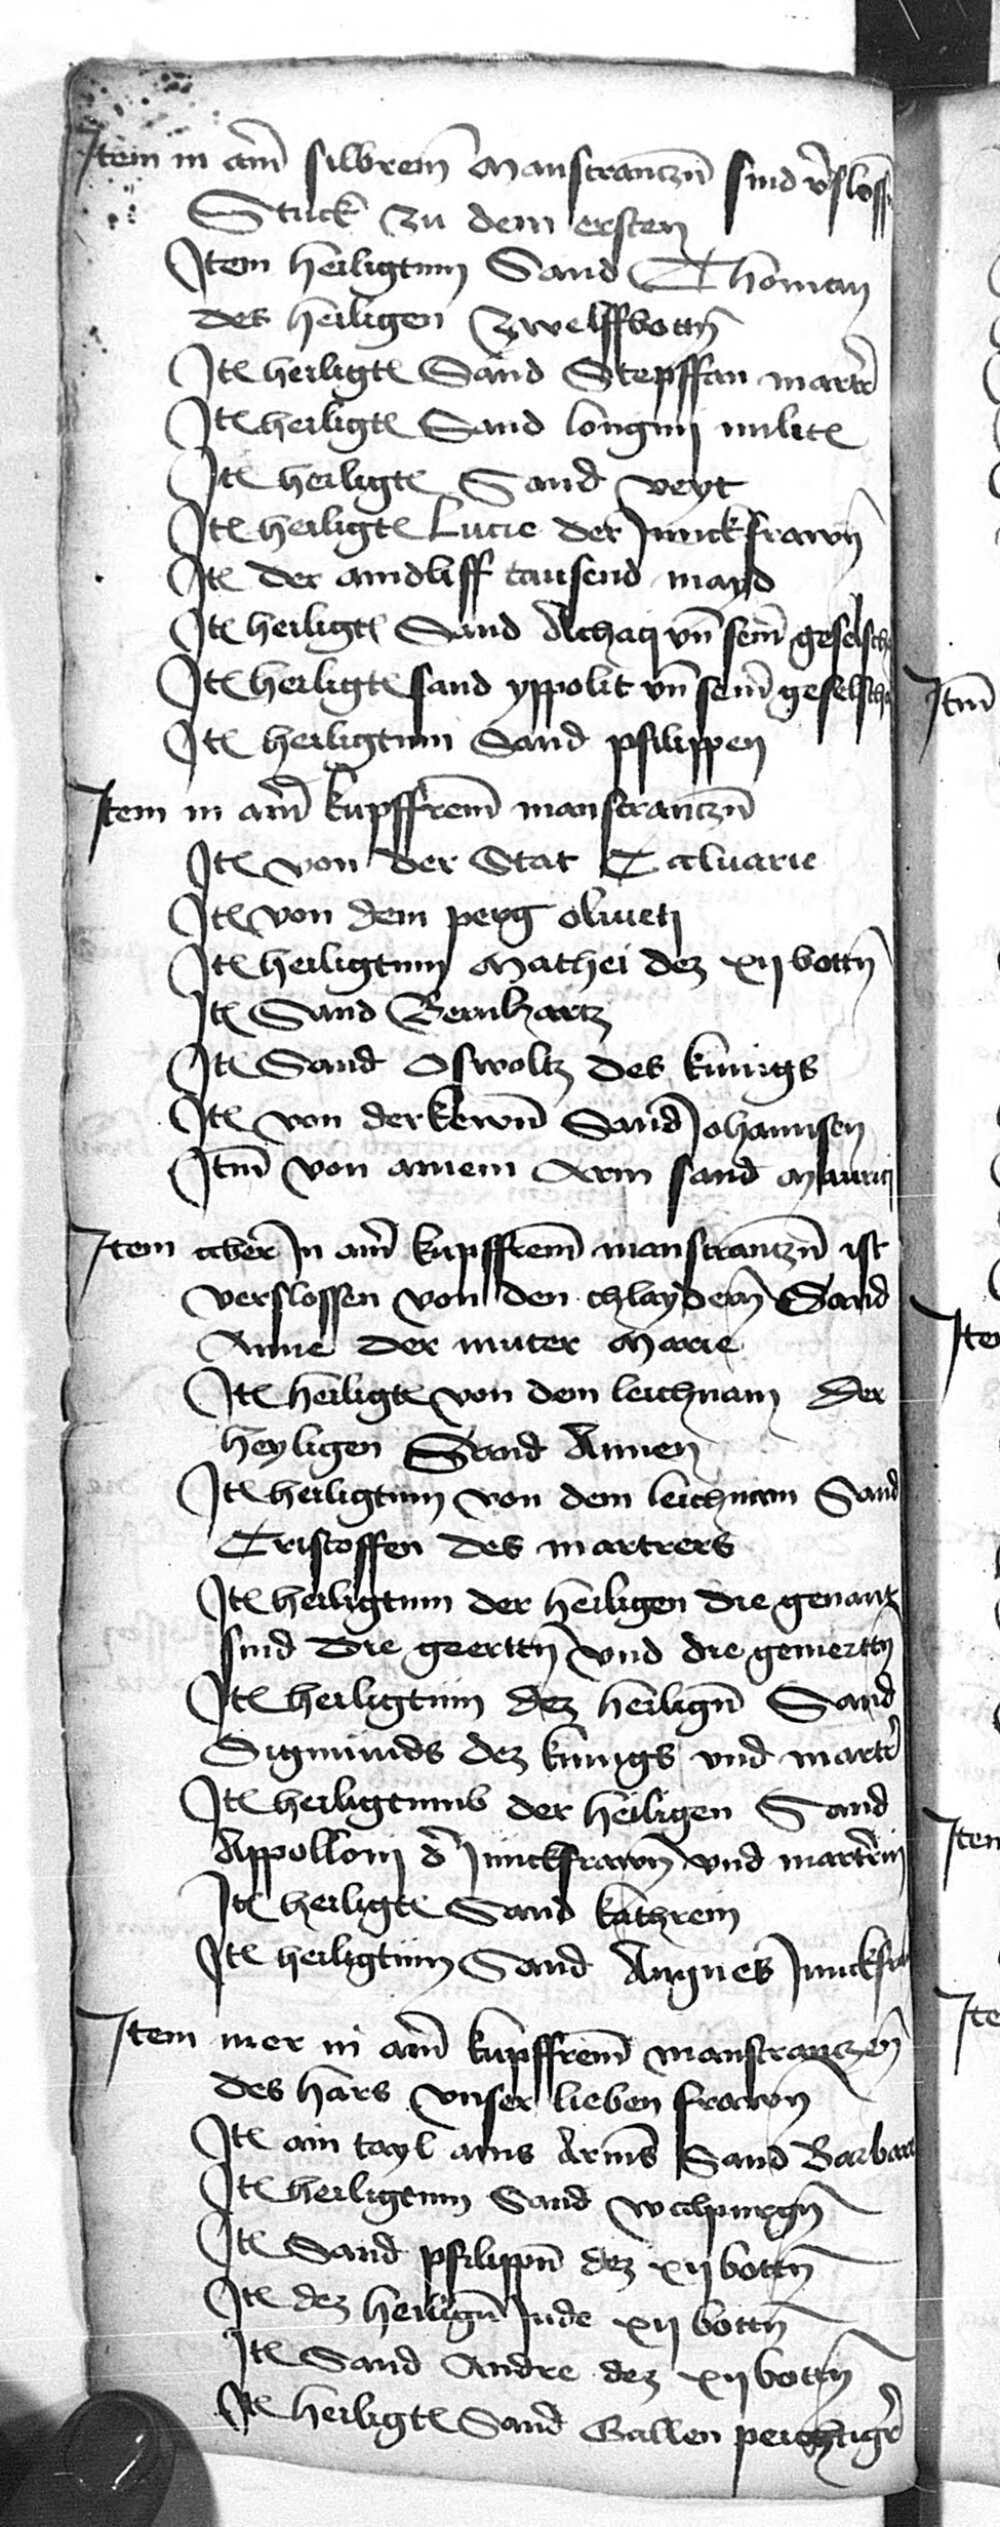 Item in aim̄ silbrem̄ Manstranczn̄ sind v̄sloss
Stuck zu dem ersten
Item heiligtum Sand Thoman
des heiligen Zwelffbottn̄
Itē heiligtē Sand Steffan martr̄
Itē heiligtē Sand longinj militē
Itē heiligtē Sand veyt
Itē heiligtē Lucie der Junckfrawn̄
Itē der aindliff tausend mayd
Itē heiligtē Sand Achacij vn̄ seinr̄ geselscha
Itē heiligtē sand yppolit vn̄ seinr̄ geselscha
Itē heiligtum Sand philippen
Item in aim̄ kupffrem̄ manstranczn̄
Itē von der Stat Caluarie
Itē von dem perg oliueti
Itē heiligtum Mathei dez xij bottn̄
Itē Sand Bernhartz
Itē Sand Oswoltz des kunigs
Itē von der kewn̄ Sand Johannsen
Itm̄ von ainem Arm sand Mauricij
Item aber in aim̄ kupffrem̄ manstranczn̄ ist
verslossen von den chlaydern̄ Sand
Anne der muter Marie
Itē heiligtē von dem leichnam der
heyligen Sand Annen
Itē heiligtum von dem leichnam Sand
Cristoffen des martrers
Itē heiligtum der heiligen die genant
sind die geertn̄ vnd die gemertn̄
Itē heiligtum dez heilign̄ Sand
Sigmunds dez kunigs vnd martr̄
Itē heiligtumb der heiligen Sand
Appollonj d̄ Junckfrawn̄ vnd martrerin
Itē heiligtē Sand kathrein
Itē heiligtum Sand Angnes Junckfra
Item mer in aim̄ kupffrem̄ manstranczen̄
des hars vnser lieben frawn̄
Itē ain tayl ains Arms Sand Barbara
Itē heiligtum Sand walpurgn̄
Itē Sand philippn̄ dez xij bottn̄
Itē dez heilign̄ Jude xij bottn̄
Itē Sand Andre dez xij bottn̄
Itē heiligtē Sand Gallen peichtigr̄
Itm̄
Item
Item
Ite